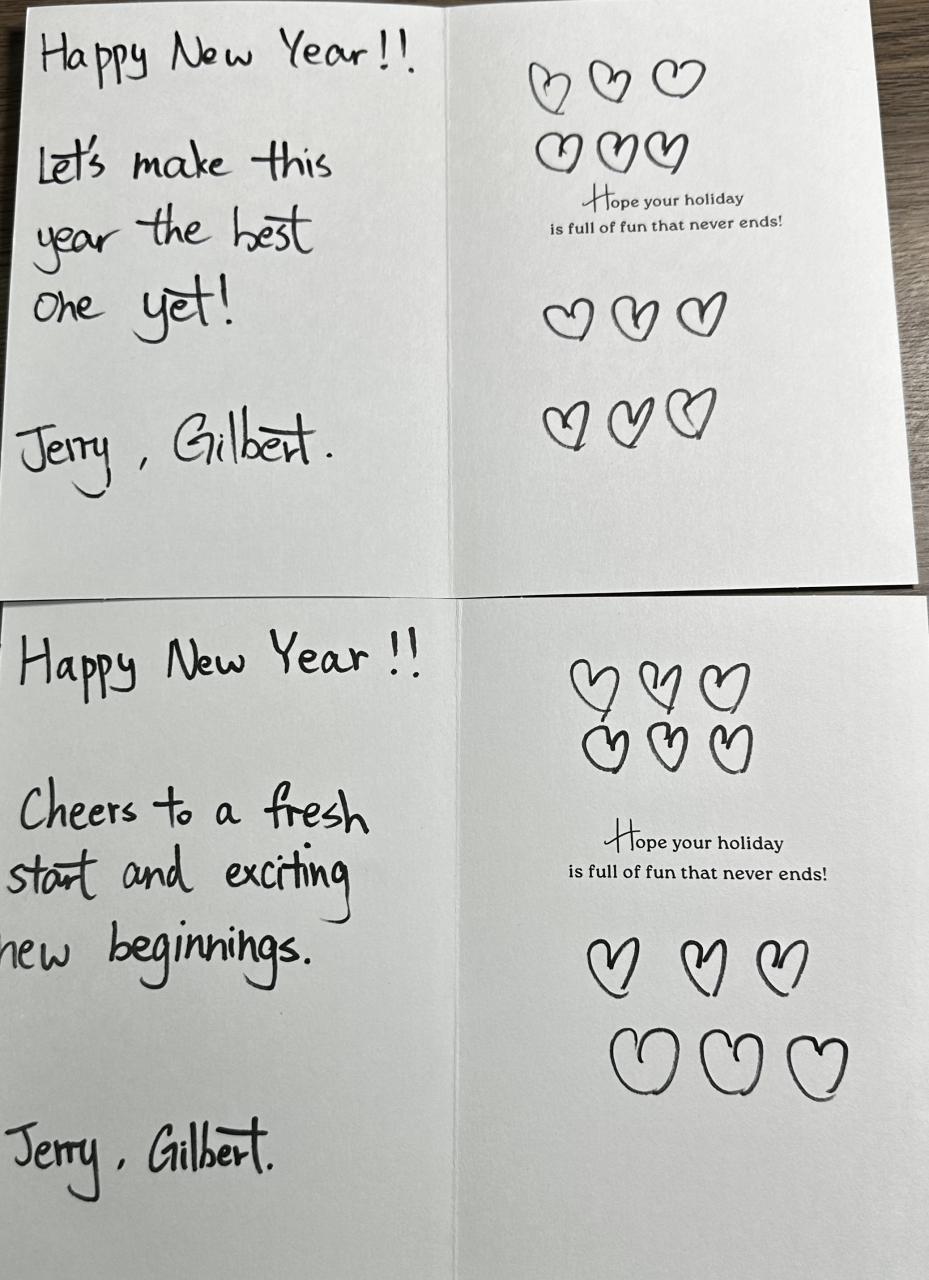 Happy New Year!!
Let's make this
year the best
one yet!
Jerry, Gilbert.
Hope your holiday
is full of fun that never ends!
Happy New Year!!
Cheers to a fresh
start and exciting
new beginnings.
Jerry, Gilbert.
Hope your holiday
is full of fun that never ends!